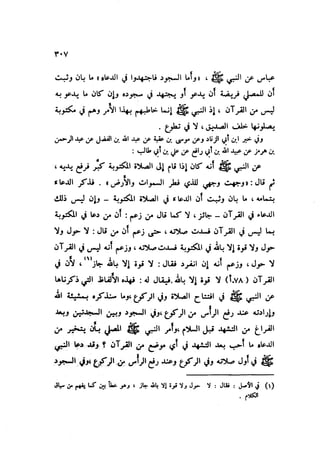 ٣٠٧
عباس عن النبي ﷺ ، «وأما السجود فاجتهدوا في الدعاء» ما بان وثبت
أن للمصلي فريضة أن يدعو أو يجتهد في سجوده وإن كان ما يدعو به
ليس من القرآن ، إذ النبي ﷺ إنما خاطبهم بهذا الأمر وهم في مكتوبة
يصلونها خلف الصديق ، لا في تطوع .
وفي خبر ابن أبي الزناد عن موسى بن عقبة عن عبد الله بن الفضل عن عبدالرحمن
بن هرمز عن عبيد الله بن أبي رافع عن علي بن أبي طالب :
عن النبي ﷺ أنه كان إذا قام إلى الصلاة المكتوبة كبر ورفع يديه ،
ثم قال : «وجهت وجهي للذي فطر السموات والأرض» . فذكر الدعاء
بتمامه ، ما بان وثبت أن الدعاء في الصلاة المكتوبة – وإن ليس ذلك
الدعاء في القرآن – جائز ، لا كما قال من زعم : أن من دعا في المكتوبة
بما ليس في القرآن فسدت صلاته ، حتى زعم أن من قال : لا حول ولا
قوة إلا بالله في المكتوبة فسدت صلاته ، وزعم أنه ليس في القرآن
لا حول ، وزعم أنه إن انفرد فقال : لا قوة إلا بالله جاز(١) ، لأن في
القرآن (٧٨،أ) لا قوة إلا بالله . فيقال له : فهذه الألفاظ التي ذكرناها
عن النبي ﷺ في افتتاح الصلاة وفي الركوع وما سنذكره بمشيئة الله
وإرادته عند رفع الرأس من الركوع وفي السجود وبين السجدتين وبعد
الفراغ من التشهد قبل السلام ، وأمر النبي ﷺ المصلي بأن يتخير من
الدعاء ما أحب بعد التشهد في أي موضع من القرآن ؟ وقد دعا النبي
في أول صلاته وفي الركوع وعند رفع الرأس من الركوع وفي السجود
(١) في الأصل : فقال : لا حول ولا قوة إلا بالله جاز ، وهو خطأ بين كما يفهم من سياق
الكلام .